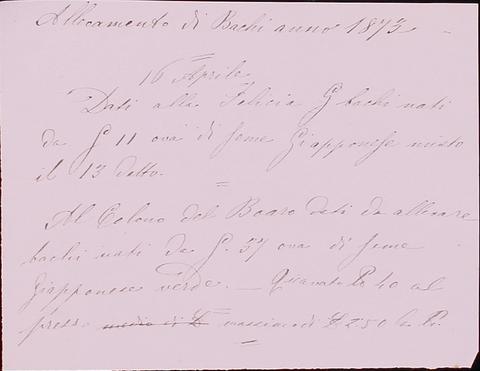 Allevamento di Bachi anno 1873
16 Aprile
Dati alla Felicia G bachi nati
da G 11 ova di seme Giapponese misto
il 13 detto.
Al Colono del Boaro dati da allevare
bachi nati da G. 37 ova di seme
Giapponese verde. — 40 al
prezzo medio di £ massimo di £ 2.50